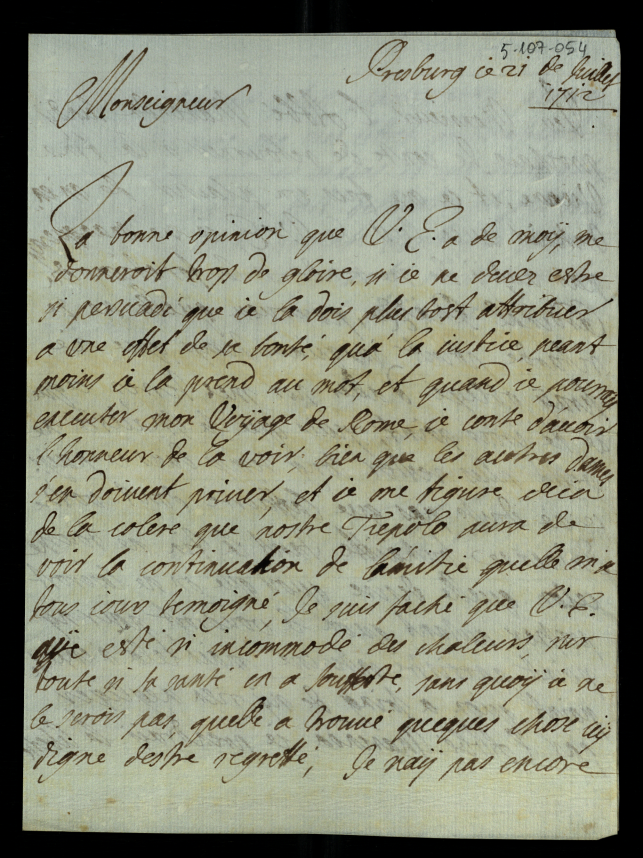 5-107-054
Presburg ce 21 de Juillet
1712
Monseigneur
La bonne opinion que V. E. a de moÿ, me
donneroit trop de gloire, si ie ne devez estre
si persuadé que ie la dois plus tost attribuer
a une effet de sa bonté, qu'á la iustice, neant
moins ie la prend au mot, et quand ie pourray
executer mon Voyage de Rome, ie conte d'avoir
l'honneur de la voir, bien que les autres dames
s'en doivent priver, et ie me figure deia
de la colere que nostre Tiepolo aura de
voir la continuation de l'amitie quelle m'a
tous iours temoigné, Je suis faché que V. E.
aÿe esté si incommodé des chaleurs, sur
toute si sa santé en a soufferte, sans quoÿ ie ne
le serois pas, quelle a trouvé queques chose icÿ
digne destre regretté, Je n'aÿ pas encore